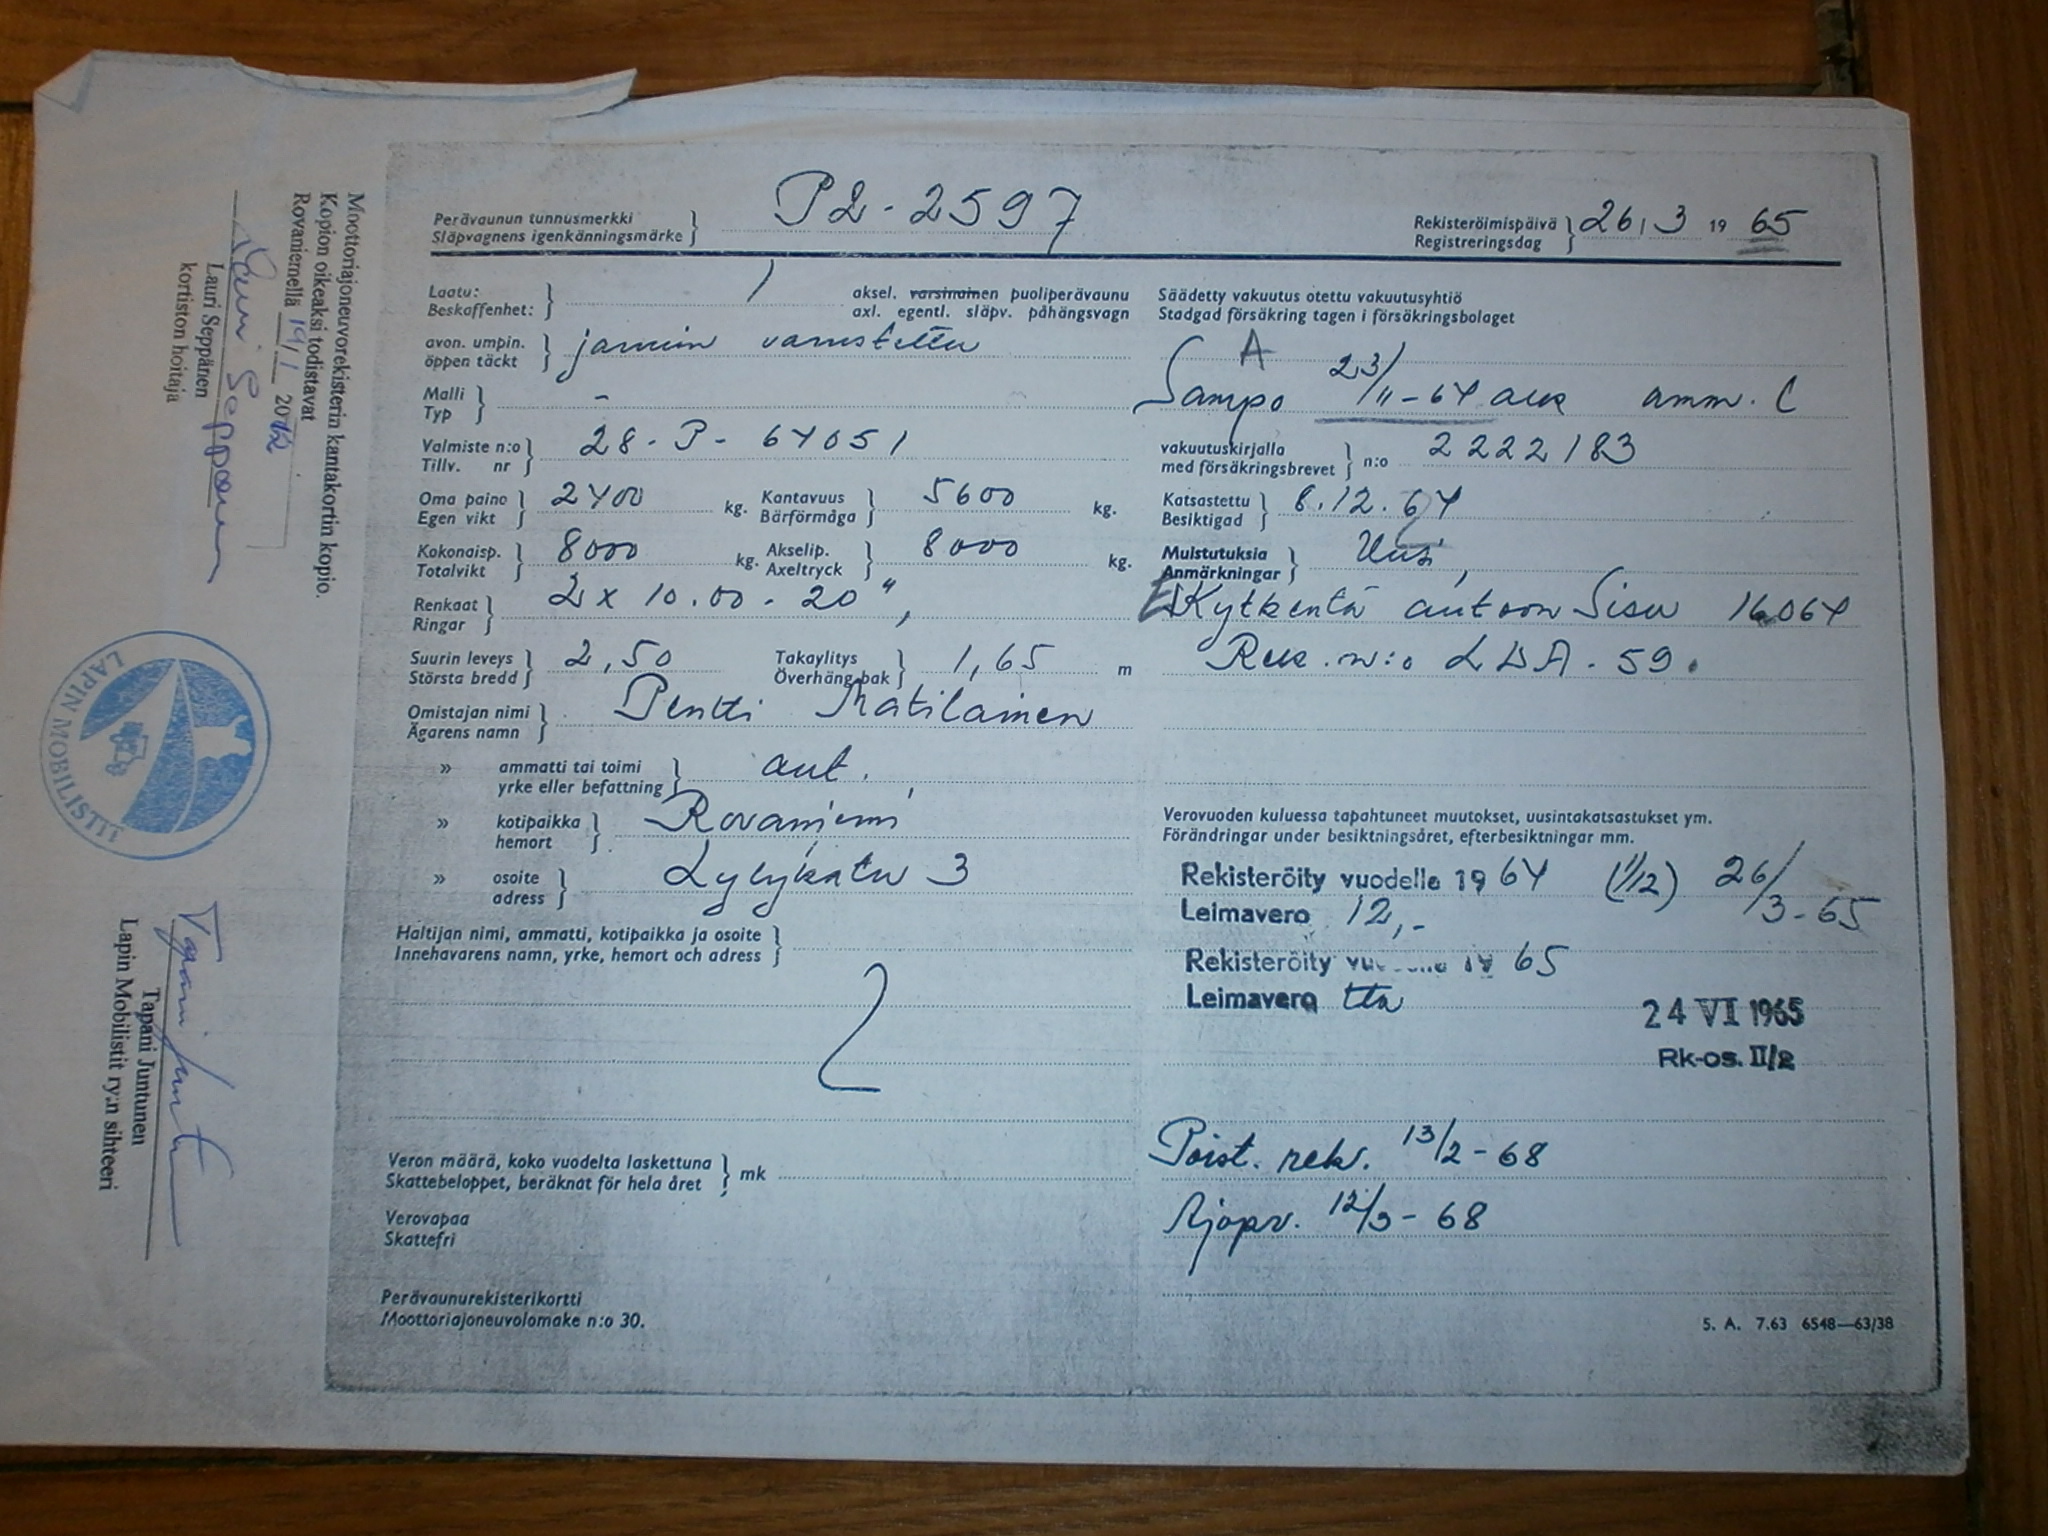 Perävaunun tunnusmerkki
Släpvagnens igenkänningsmärke
P2-2597
Rekisteröimispäivä
Registreringsdag
26/3 1965
Laatu:
Beskaffenhet:
1
aksel. varsinainen puoliperävaunu
axl. egentl. släpv. påhängsvagn
avon. umpin.
öppen täckt
jarruin varustettu
Malli
Typ
-
Valmiste n:o
Tillv. nr
28-P-64051
Oma paino
Egen vikt
2400 kg.
Kantavuus
Bärförmåga
5600 kg.
Kokonaisp.
Totalvikt
8000 kg.
Akselip.
Axeltryck
8000 kg.
Renkaat
Ringar
2 x 10.00-20",
Suurin leveys
Största bredd
2,50
Takaylitys
Överhäng bak
1,65 m
Omistajan nimi
Ägarens namn
Pentti Matilainen
» ammatti tai toimi
yrke eller befattning
aut.
» kotipaikka
hemort
Rovaniemi
» osoite
adress
Lylykatu 3
Haltijan nimi, ammatti, kotipaikka ja osoite
Innehavarens namn, yrke, hemort och adress
Veron määrä, koko vuodelta laskettuna
Skattebeloppet, beräknat för hela året
mk
Verovapaa
Skattefri
Perävaunurekisterikortti
Moottoriajoneuvolomake n:o 30.
Säädetty vakuutus otettu vakuutusyhtiö
Stadgad försäkring tagen i försäkringsbolaget
A
Sampo 23/11-64 amm. C
vakuutuskirjalla
med försäkringsbrevet
n:o 2222183
Katsastettu
Besiktigad
8.12.64
Muistutuksia
Anmärkningar
Uusi,
Kytkentä autoon Sisu 16064
Rek. n:o LDA-59.
Verovuoden kuluessa tapahtuneet muutokset, uusintakatsastukset ym.
Förändringar under besiktningsåret, efterbesiktningar mm.
Rekisteröity vuodelle 1964 (1/12) 26/3-65
Leimavero 12,-
Rekisteröity vuodelle 1965
Leimavero tta
24 VI 1965
Rk-os. II/2
Poist. rek. 13/2-68
Ajopv. 12/3-68
5. A. 7.63 6548—63/38
Moottoriajoneuvorekisterin kantakortin kopio.
Kopion oikeaksi todistavat
Rovaniemellä 19/1 2012
Lauri Seppänen
Lauri Seppänen
kortiston hoitaja
LAPIN MOBILISTIT
Tapani Juntunen
Tapani Juntunen
Lapin Mobilistit ry:n sihteeri